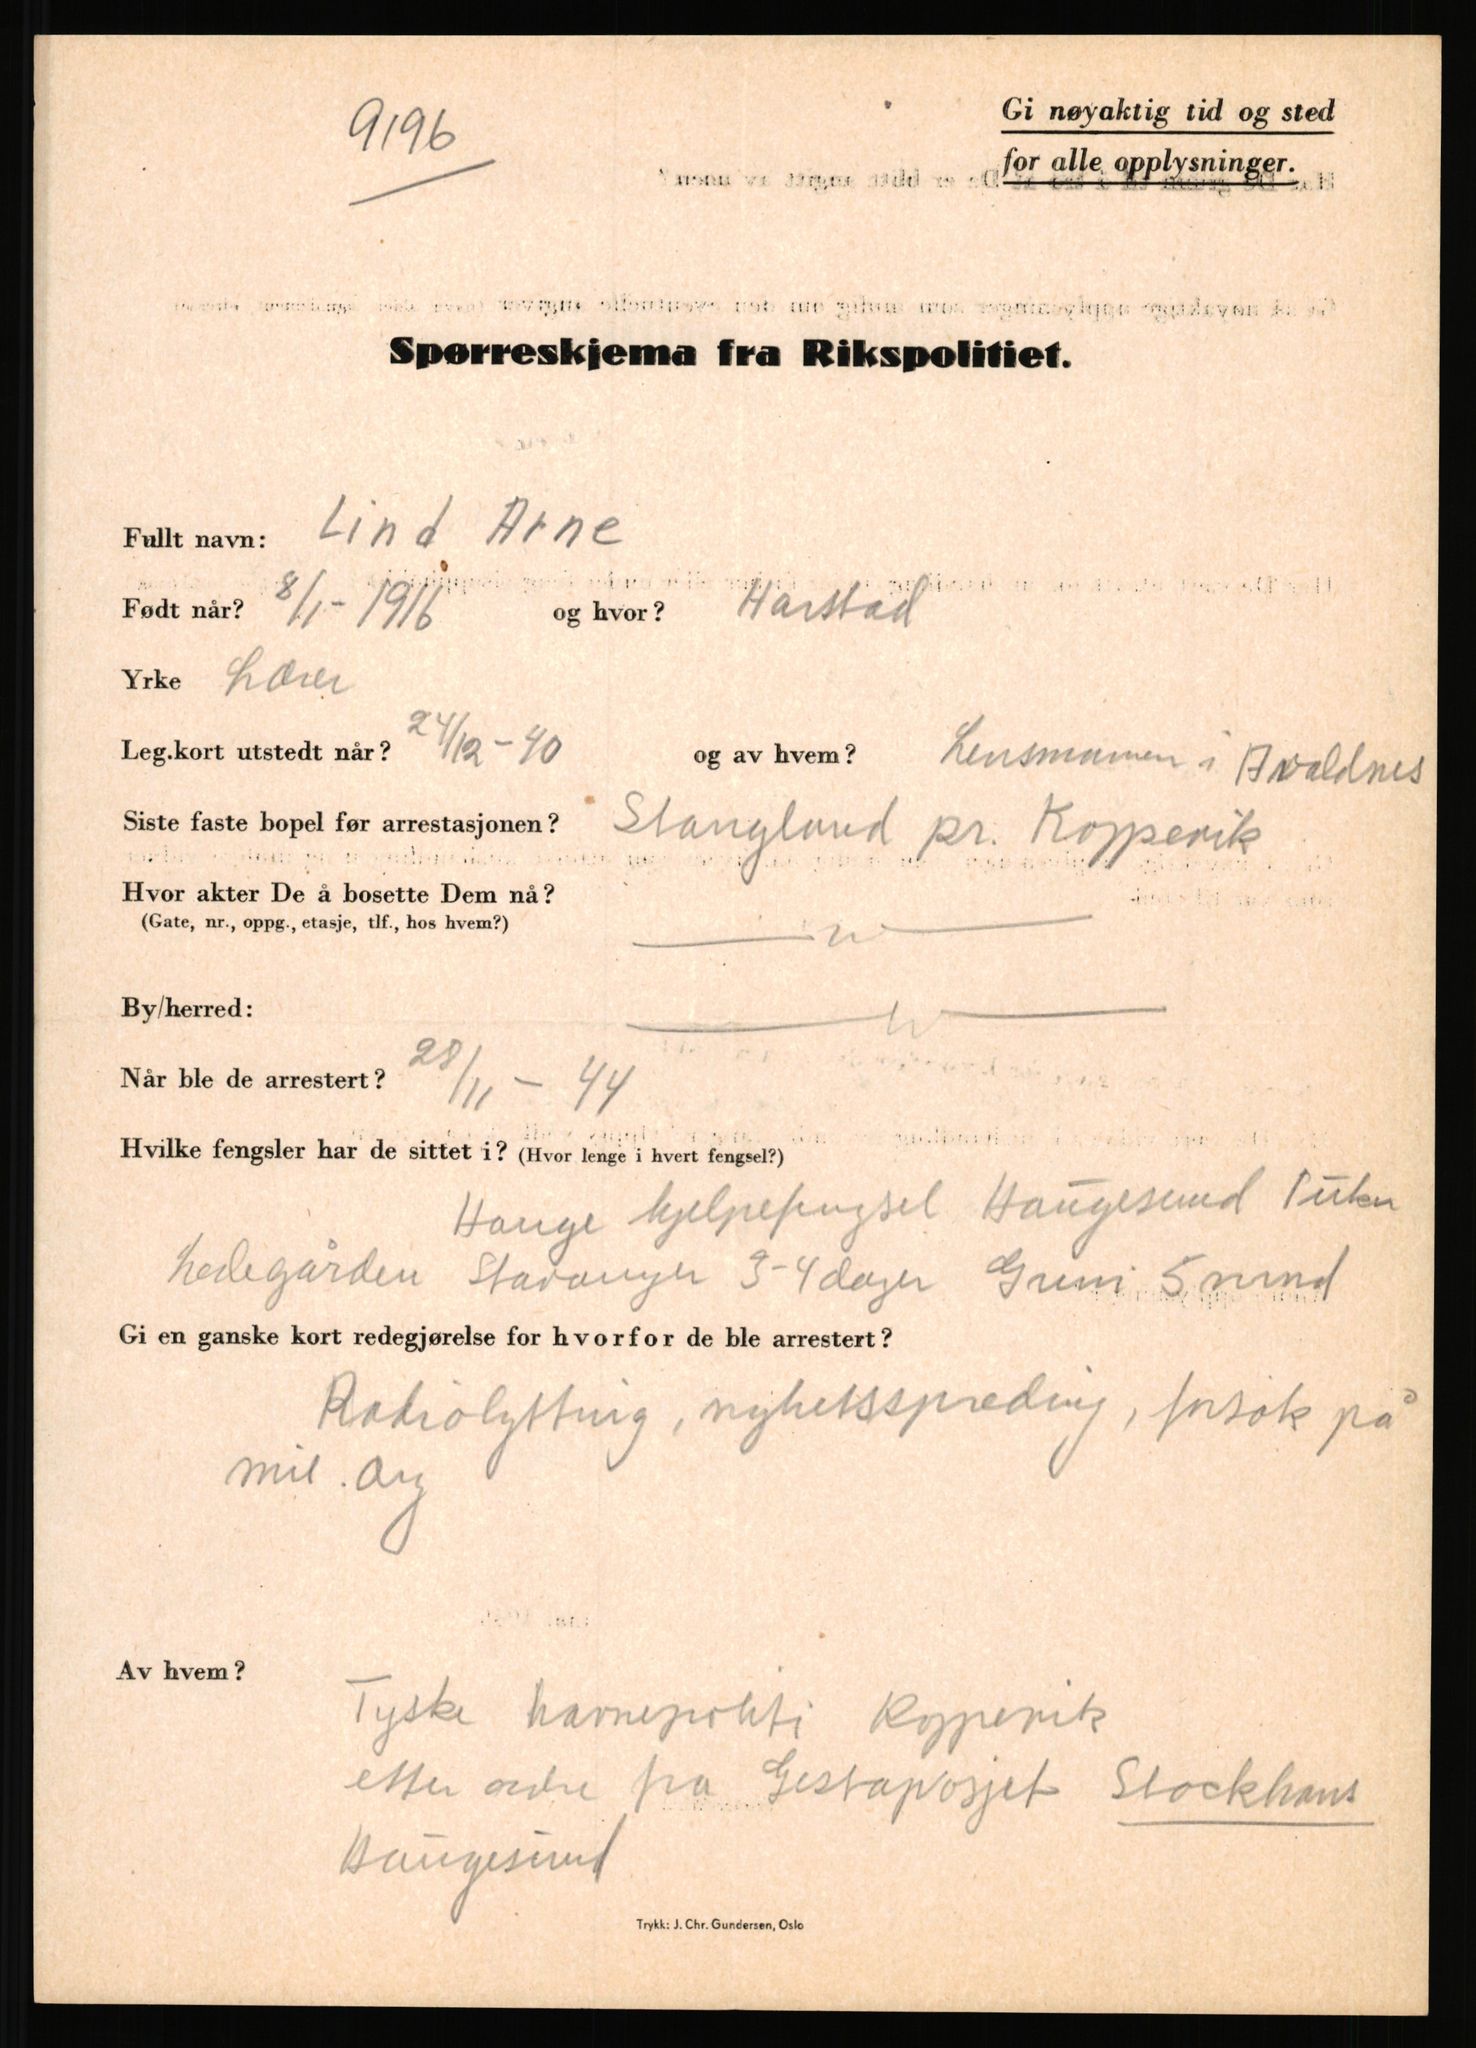 9196
Gi nøyaktig tid og sted
for alle opplysninger.
Spørreskjema fra Rikspolitiet.
Fullt navn: Lind Arne
Født når? 8/1 - 1916 og hvor? Harstad
Yrke Lærer
Leg.kort utstedt når? 24/12 - 40 og av hvem? Lensmannen i Avaldnes
Siste faste bopel før arrestasjonen? Stangland pr. Kopperik
Hvor akter De å bosette Dem nå?
(Gate, nr., oppg., etasje, tlf., hos hvem?)
By/herred:
Når ble de arrestert? 28/11 - 44
Hvilke fengsler har de sittet i? (Hvor lenge i hvert fengsel?)
Hauge hjelpefengsel Haugesund 1 uke
Ledegården Stavanger 3-4 dager Grini 5 mnd
Gi en ganske kort redegjørelse for hvorfor de ble arrestert?
Radiolytting, nyhetsspreding, forsøk på
mil. org
Av hvem?
Tyske havnepoliti Kopperik
etter ordre fra Gestaposjef Stockhaus
Haugesund
Trykk: J. Chr. Gundersen, Oslo